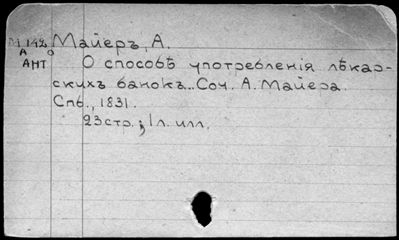 М 142 Майеръ, А.
А о
АНТ О способѣ употребленія лѣкар-
скихъ банокъ... Соч. А. Майера.
Спб., 1831.
23стр.; 1л. илл.